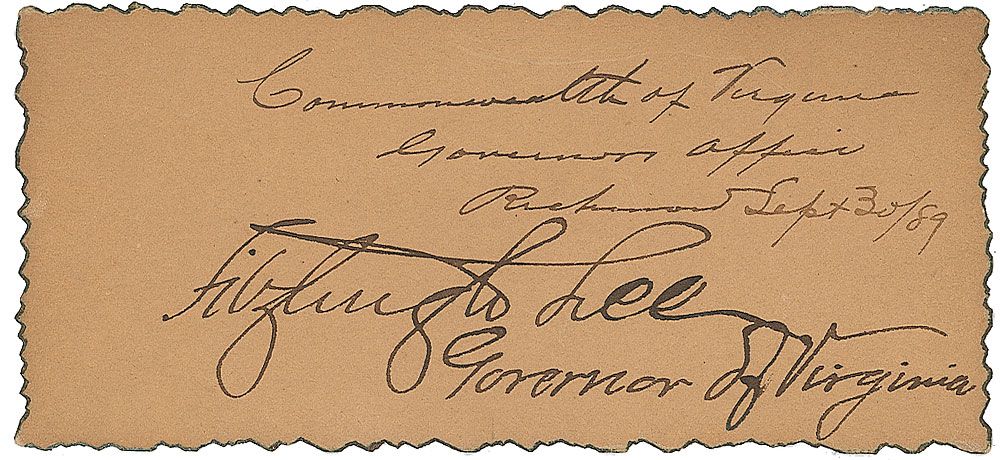 Commonwealth of Virginia
Governors Office
Richmond Sept 30/89
Fitzhugh Lee
Governor of Virginia